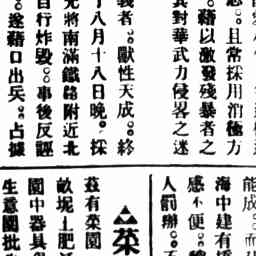 。且常採用消極方
。藉以激發殘暴者之
其對華武力侵略之迷
義者。獸性天成。終
八月十八日晚。採
將南滿鐵路附近北
自行炸毀。事後反誣
。遂藉口出兵。占據
能成。而
海中建有
感不便。
人罰辦。
菜
茲有菜園
畝坭土肥
園中器具
生意